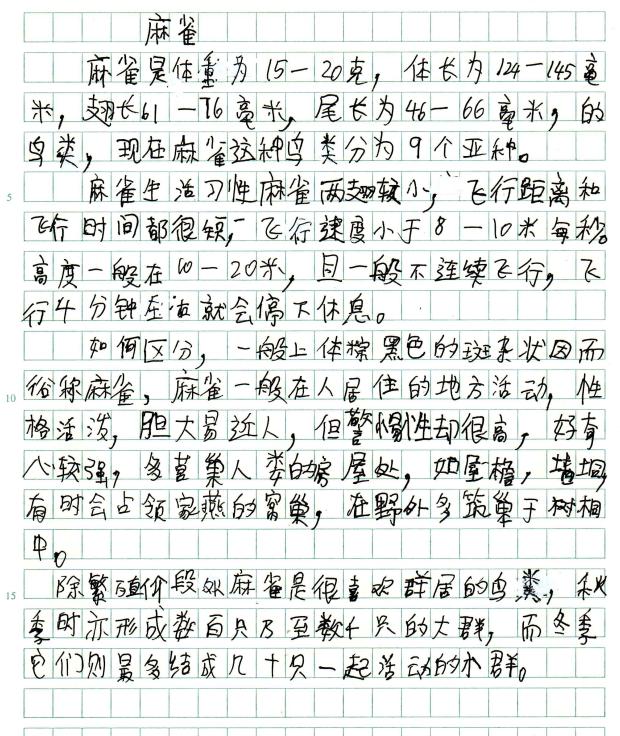 麻雀
麻雀是体重为15—20克，体长为124—145毫
米，翅长61—76毫米，尾长为46—66毫米，的
鸟类，现在麻雀这种鸟类分为9个亚种。
5 麻雀生活习性麻雀两翅较小，飞行距离和
飞行时间都很短，飞行速度小于8—10米每秒。
高度一般在10—20米，且一般不连续飞行，飞
行4分钟左右就会停下休息。
如何区分，一般上体棕黑色的斑杂状因而
10 俗称麻雀，麻雀一般在人居住的地方活动，性
格活泼，胆大易近人，但警惕性却很高，好奇
心较强，多营巢人类的房屋处，如屋檐，墙垌，
有时会占领家燕的窝巢，在野外多筑巢于树相
中。
15 除繁殖阶段外麻雀是很喜欢群居的鸟类，秋
季时亦形成数百只乃至数千只的大群，而冬季
它们则最多结成几十只一起活动的小群。